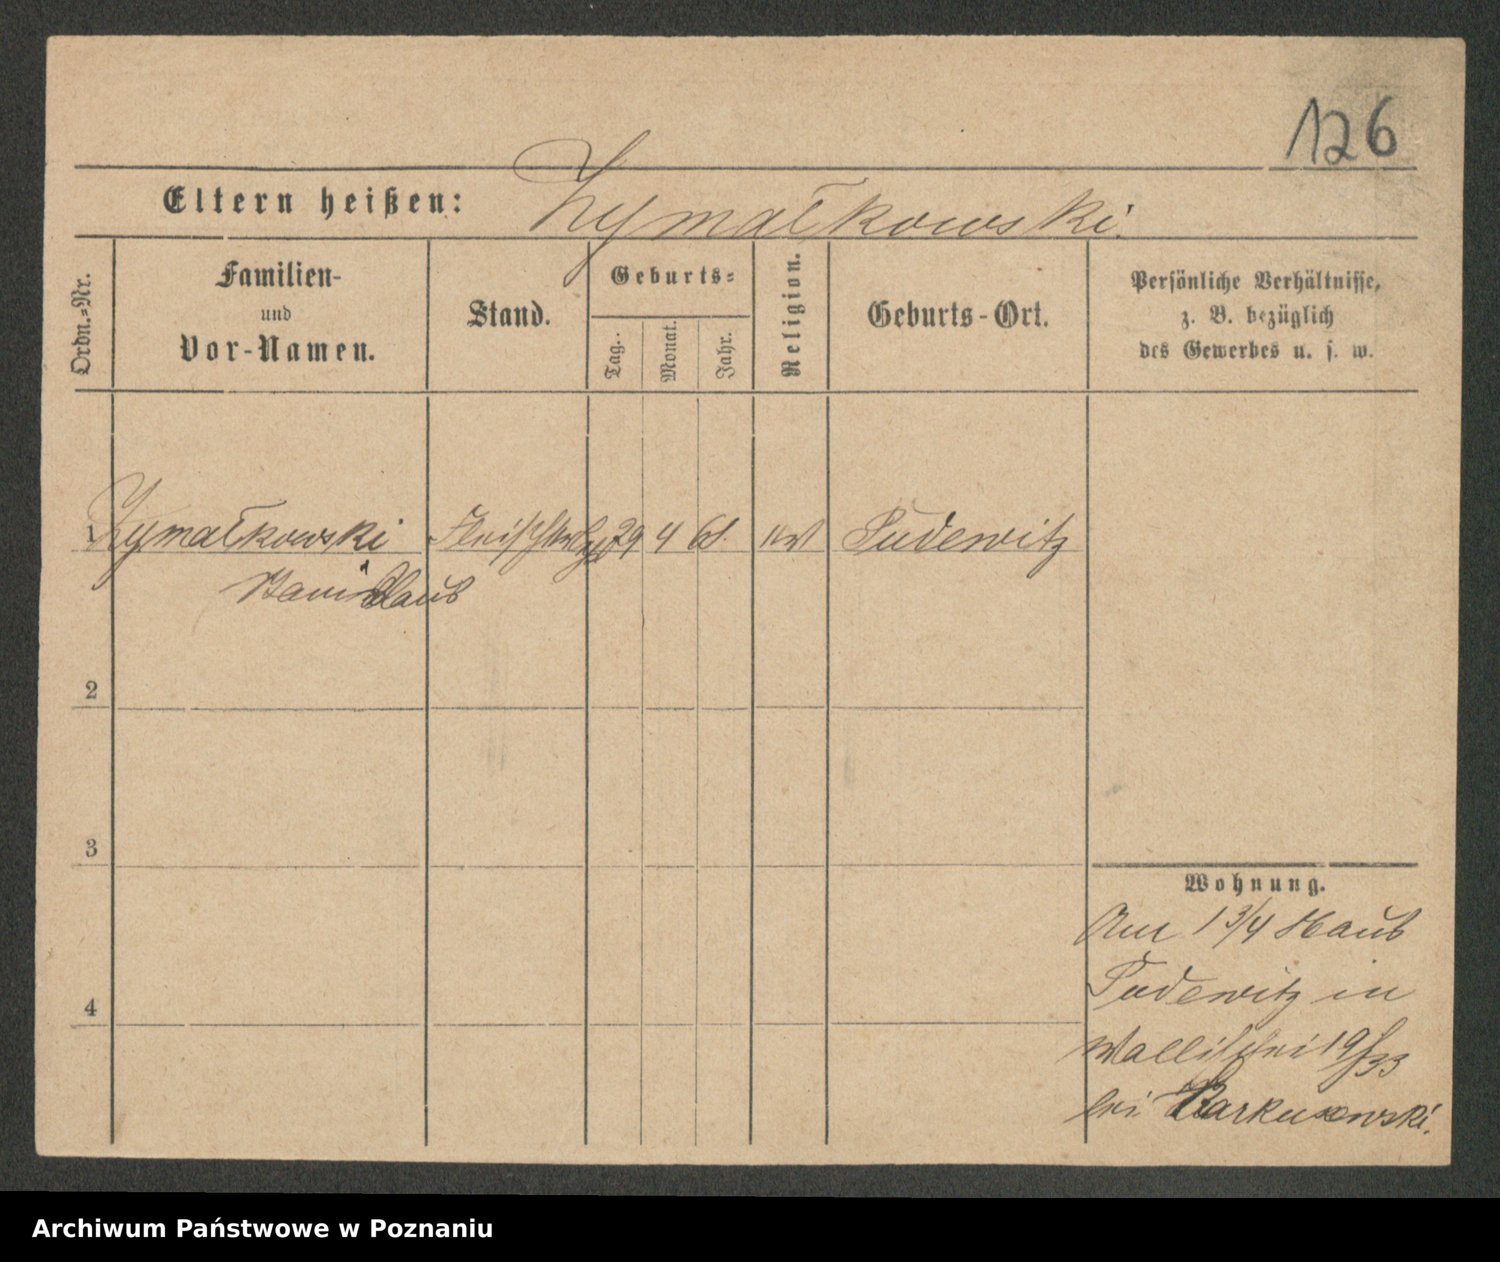 126
Eltern heißen: Zymałkowski.
Ordn.=Nr.
Familien-
und
Vor-Namen.
Stand.
Geburts=
Tag.
Monat.
Jahr.
Religion.
Geburts-Ort.
Persönliche Verhältnisse,
z. B. bezüglich
des Gewerbes u. s. w.
1 Zymałkowski 29 4 61. Pudewitz
Stanislaus
2
3
4
Wohnung.
Am 1 3/4
Pudewitz in
Wallischei 19/33
bei
Archiwum Państwowe w Poznaniu